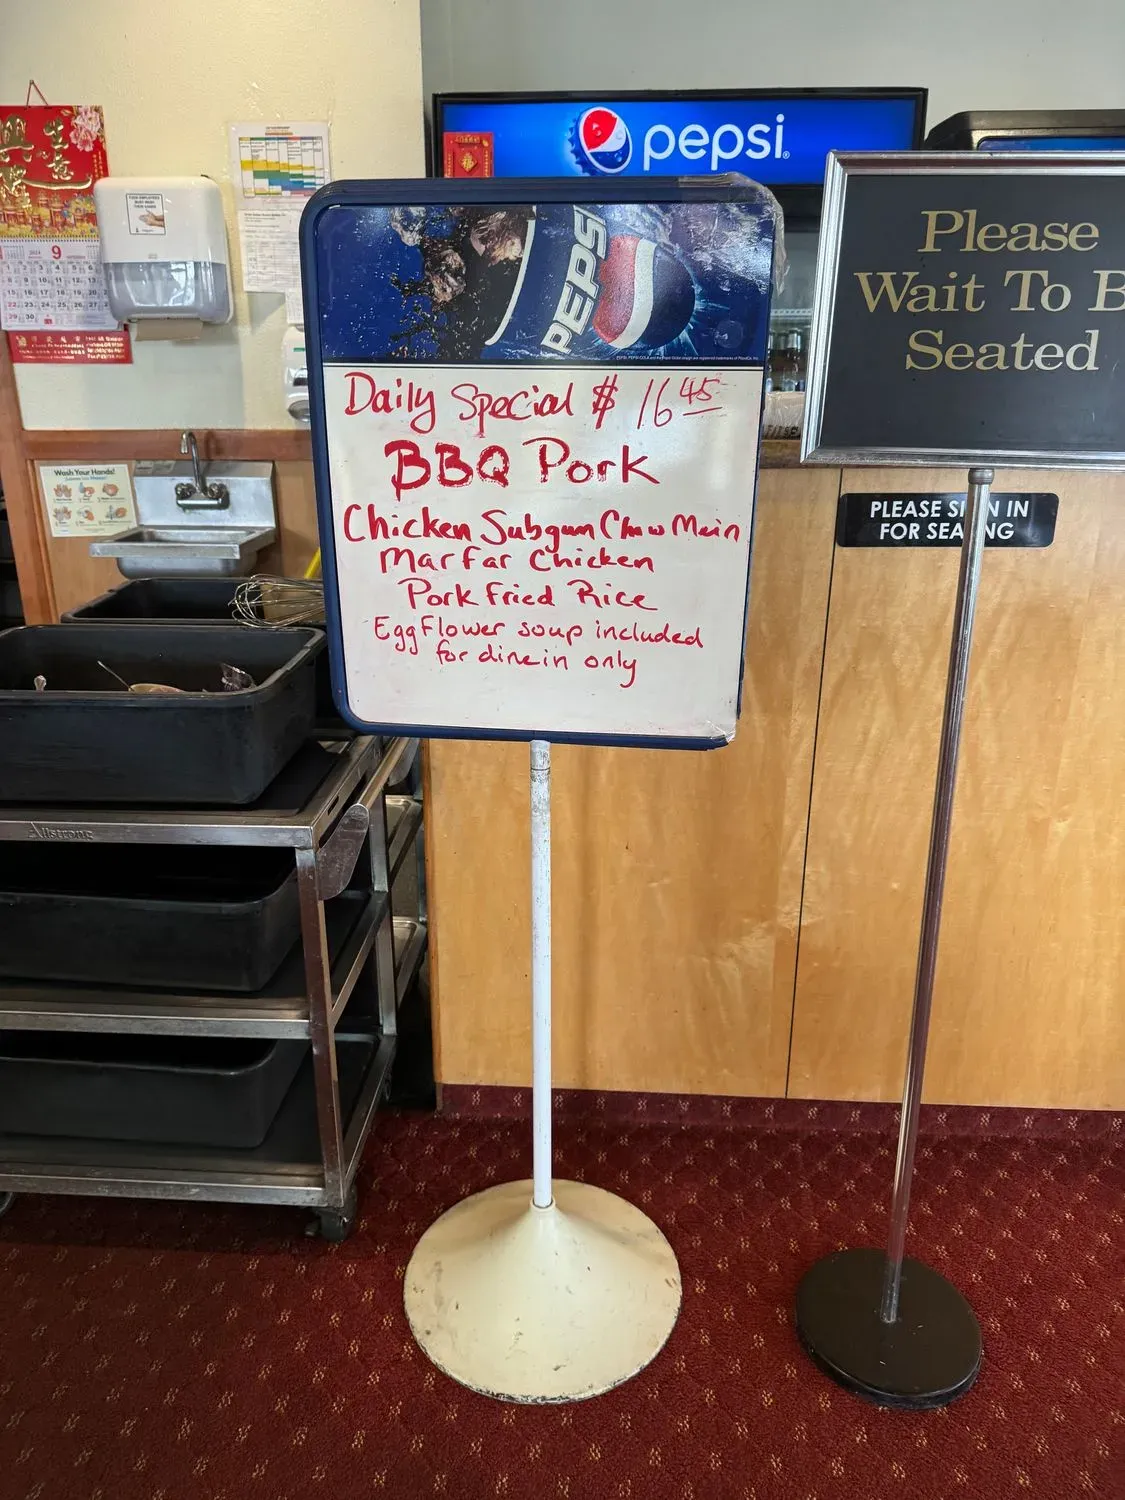 pepsi
PEPSI
Daily Special $ 16 45
BBQ Pork
Chicken Subgum Chow Mein
Mar Far Chicken
Pork Fried Rice
Egg Flower soup included
for dine in only
Please
Wait To B
Seated
PLEASE SIGN IN
FOR SEATING
Wash Your Hands!
9
Allstrong